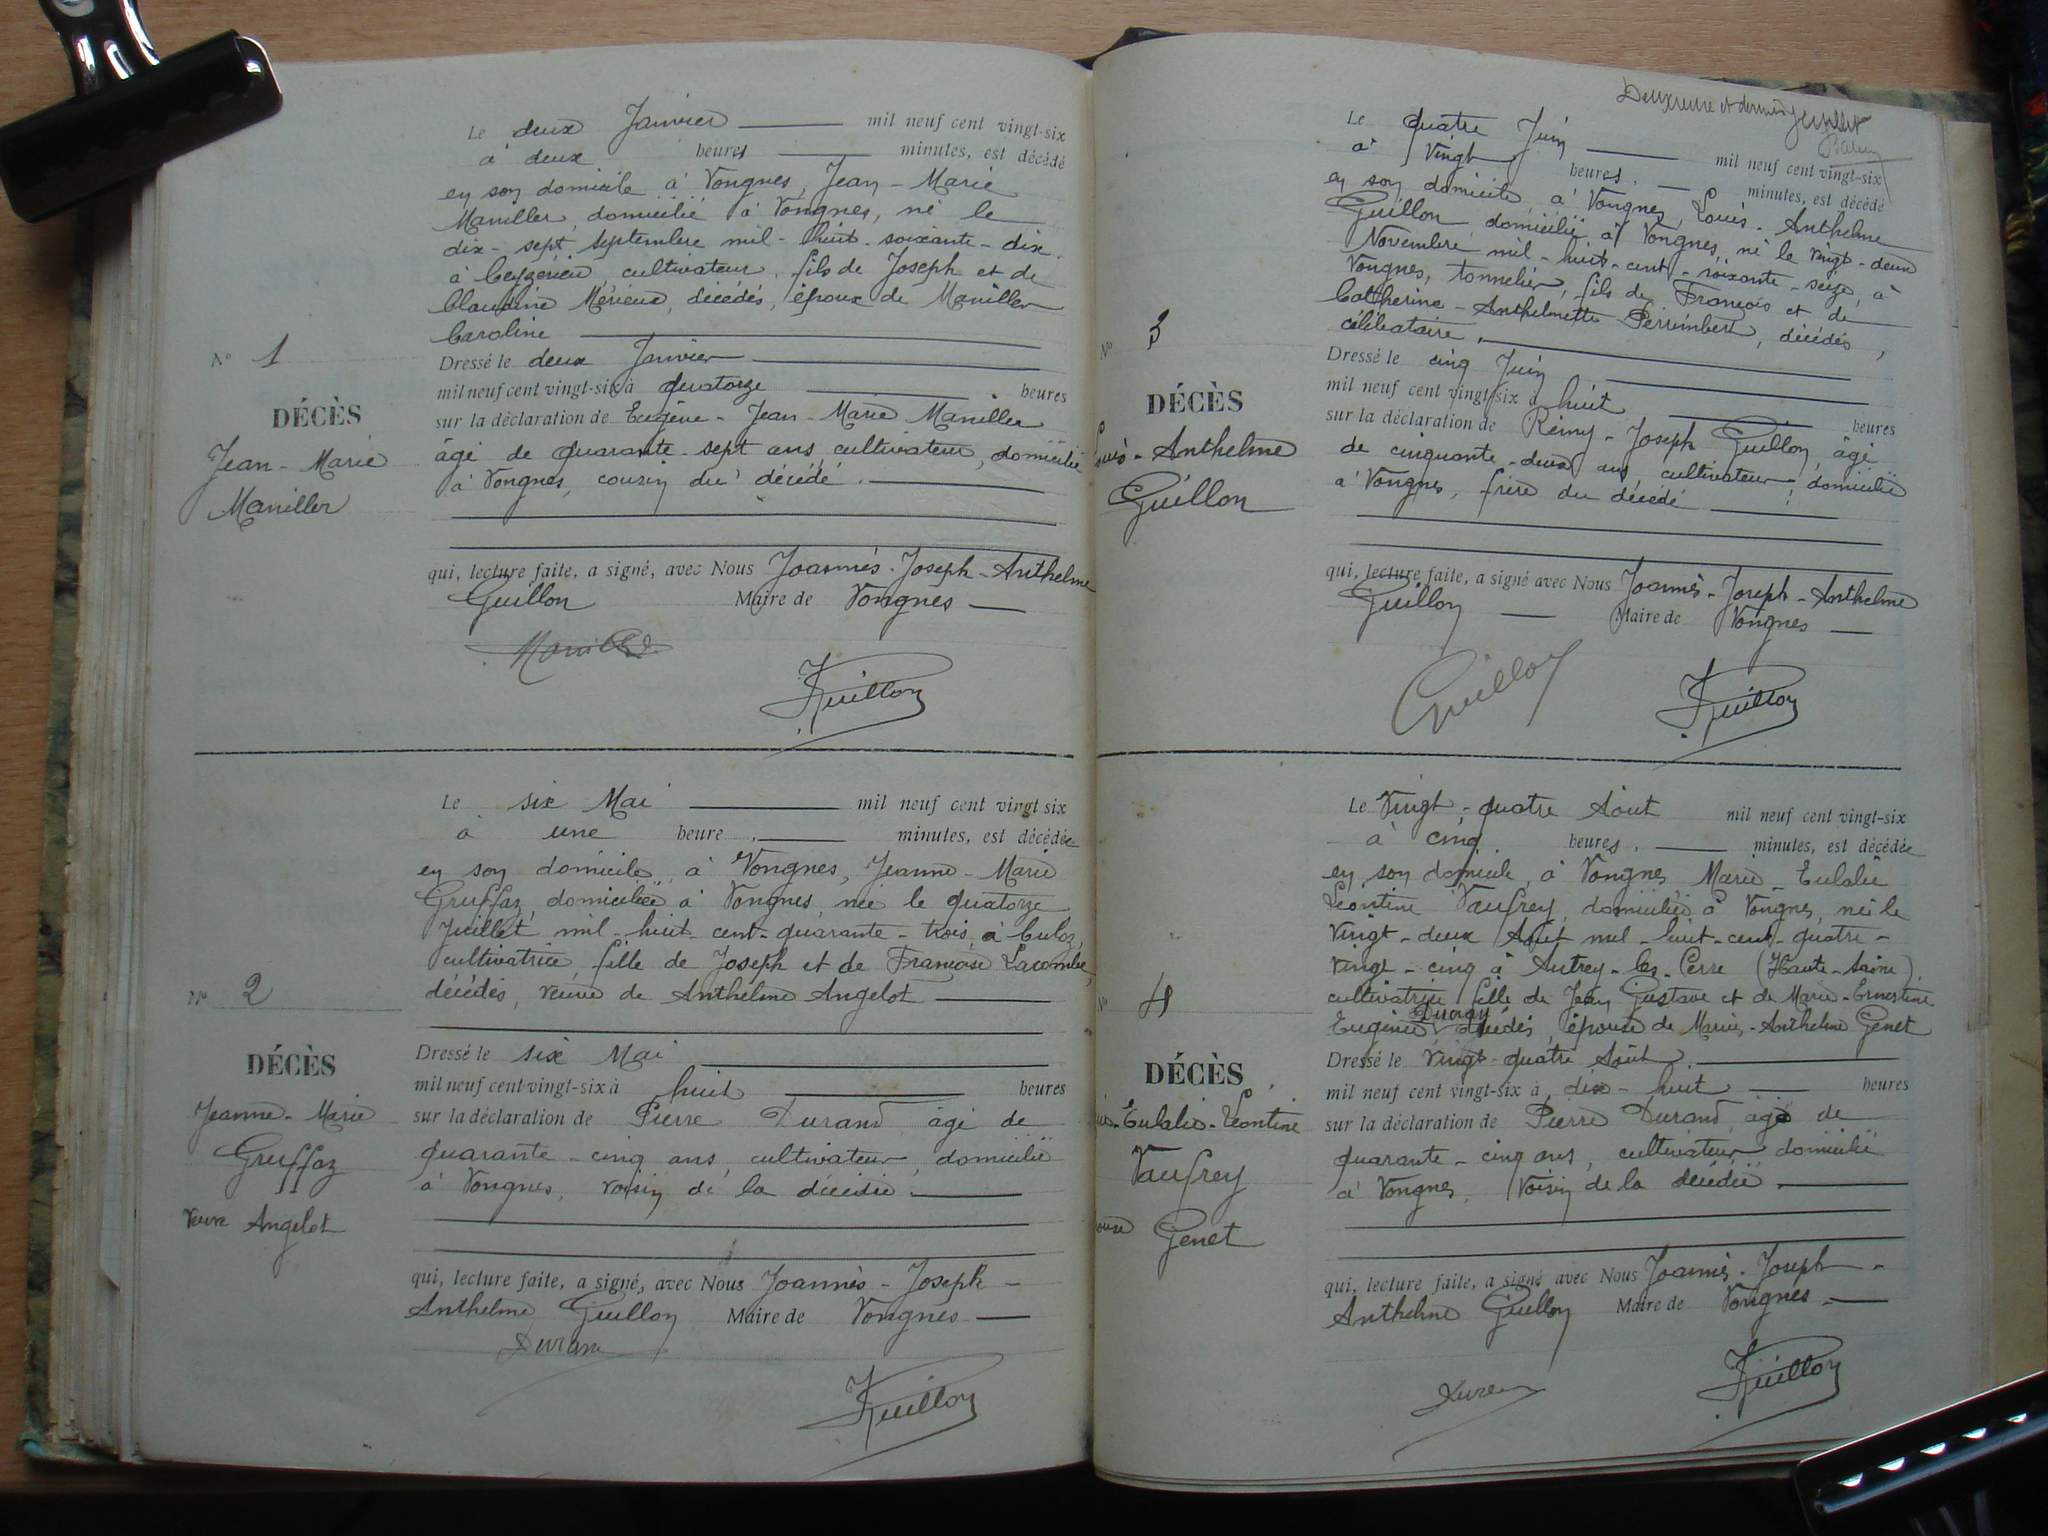 Le deux Janvier mil neuf cent vingt-six
à deux heures minutes, est décédé
en son domicile à Vongnes, Jean-Marie
Maniller, domicilié à Vongnes, né le
dix-sept Septembre mil-huit-soixante-dix
à Ceyzérieu, cultivateur, fils de Joseph et de
Claudine Mérieux, décédés, époux de Maniller
Caroline
Nº 1
Dressé le deux Janvier
mil neuf cent vingt-six à quatorze heures
DÉCÈS
sur la déclaration de Eugène-Jean-Marie Maniller
Jean-Marie
Maniller
âgé de quarante-sept ans, cultivateur, domicilié
à Vongnes, cousin du décédé.
qui, lecture faite, a signé, avec Nous Joannès-Joseph-Anthelme
Guillon Maire de Vongnes
Guillon
Le six Mai mil neuf cent vingt six
à une heure minutes, est décédée
en son domicile, à Vongnes, Jeanne-Marie
Gruffaz, domiciliée à Vongnes, née le quatorze
Juillet mil-huit-cent-quarante-trois, à Culoz,
cultivatrice, fille de Joseph et de Françoise Lacombe,
décédés, veuve de Anthelme Angelot
Nº 2
Dressé le six Mai
mil neuf cent vingt-six à huit heures
DÉCÈS
Jeanne-Marie
Gruffaz
Veuve Angelot
sur la déclaration de Pierre Durand, âgé de
quarante-cinq ans, cultivateur, domicilié
à Vongnes, voisin de la décédée.
qui, lecture faite, a signé, avec Nous Joannès-Joseph-
Anthelme Guillon Maire de Vongnes
Durand
Guillon
Deuxième et dernier feuillet
Le quatre Juin mil neuf cent vingt-six
à vingt heures. minutes, est décédé
en son domicile, à Vongnes, Louis-Anthelme
Guillon, domicilié à Vongnes, né le vingt-deux
Novembre mil-huit-cent-soixante-seize, à
Vongnes, tonnelier, fils de François et de
Catherine-Anthelmette Perrimbert, décédés,
célibataire.
Nº 3
Dressé le cinq Juin
mil neuf cent vingt-six à huit heures
DÉCÈS
Louis-Anthelme
Guillon
sur la déclaration de Rémy-Joseph Guillon, âgé
de cinquante-deux ans, cultivateur, domicilié
à Vongnes, frère du décédé
qui, lecture faite, a signé avec Nous Joannès-Joseph-Anthelme
Guillon Maire de Vongnes
Guillon
Guillon
Le Vingt-quatre Août mil neuf cent vingt-six
à cinq heures. minutes, est décédée
en son domicile, à Vongnes Marie-Eulalie
Léontine Vaufrey, domiciliée à Vongnes, née le
vingt-deux Août mil-huit-cent-quatre-
vingt-cinq à Autrey-les-Cerre (Haute-Saône),
cultivatrice, fille de Jean Gustave et de Marie-Ernestine
Eugénie décédés, épouse de Marius-Anthelme Genet
Nº 4
Dressé le vingt-quatre Août
mil neuf cent vingt-six à dix-huit heures
DÉCÈS
Eulalie-Léontine
Vaufrey
Genet
sur la déclaration de Pierre Durand, âgé de
quarante-cinq ans, cultivateur domicilié
à Vongnes, voisin de la décédée.
qui, lecture faite, a signé avec Nous Joannès-Joseph-
Anthelme Guillon Maire de Vongnes
Guillon